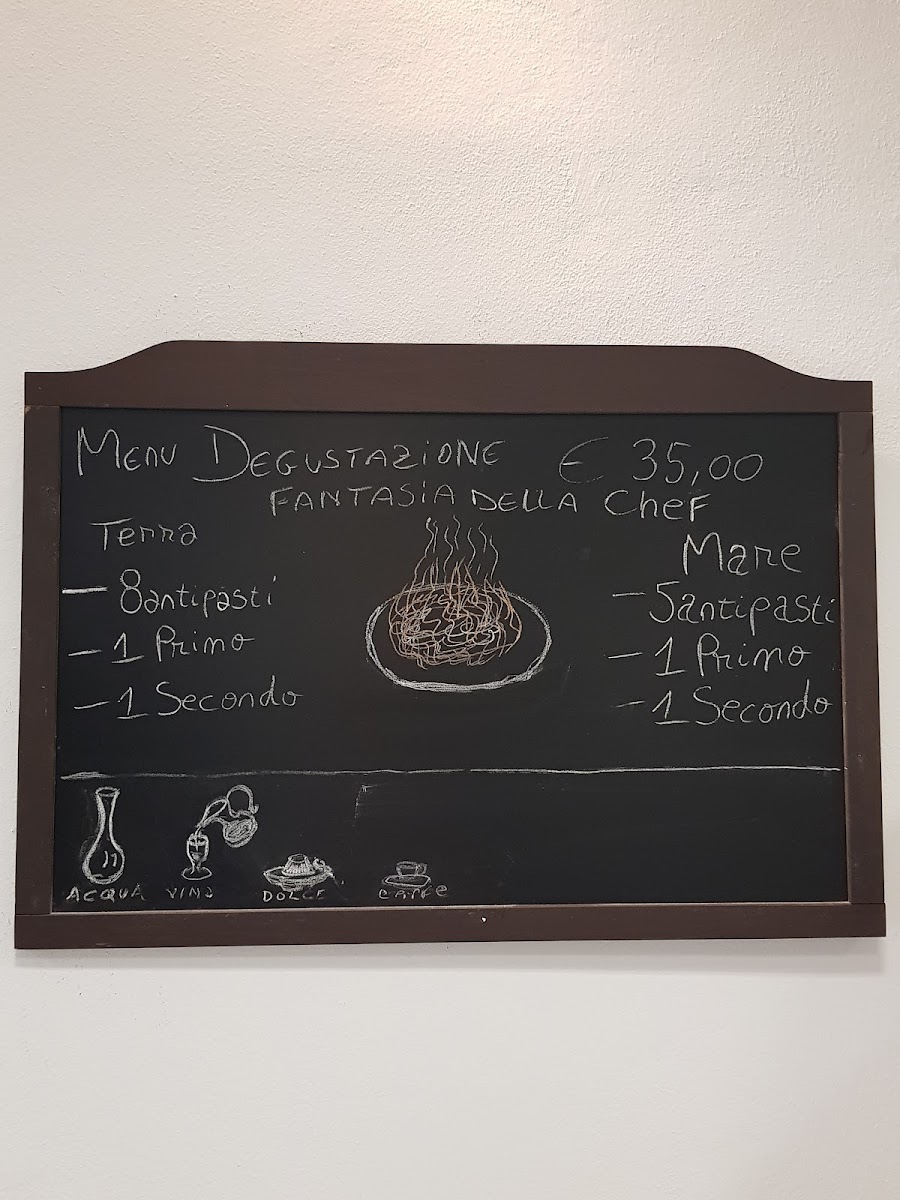 Menu Degustazione € 35,00
Fantasia della Chef
Terra
- 8 antipasti
- 1 Primo
- 1 Secondo
Mare
- 5 antipasti
- 1 Primo
- 1 Secondo
ACQUA VINO DOLCE CAFFE